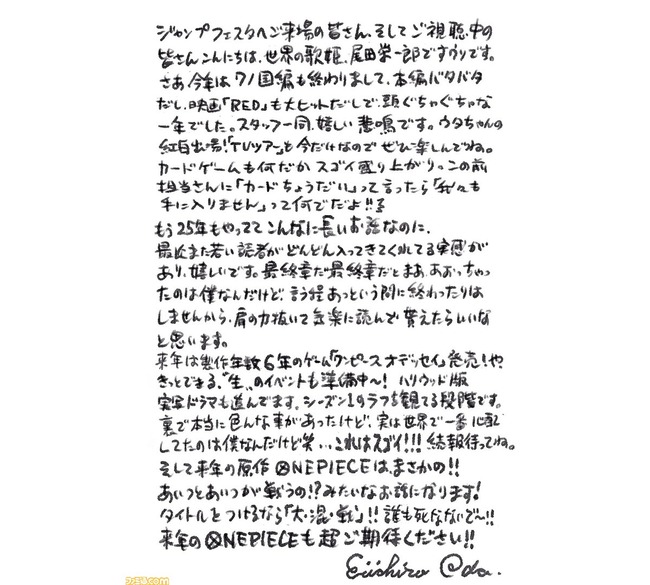 ジャンプフェスタへご来場の皆さん、そしてご視聴中の
皆さんこんにちは、世界の歌姫、尾田栄一郎ですウソです。
さあ今年はワノ国編も終わりまして、本編バタバタ
だし、映画「RED」も大ヒットだしで、頭ぐちゃぐちゃな
一年でした。スタッフ一同、嬉しい悲鳴です。ウタちゃんの
紅白出場!「TVツアー」も今だけなのでぜひ楽しんでね。
カードゲームも何だかスゴイ盛り上がり。この前
担当さんに「カードちょうだい」って言ったら「我々も
手に入りません」って何でだよ!!
もう25年もやっててこんなに長いお話なのに、
最近また若い読者がどんどん入ってきてくれてる実感が
あり、嬉しいです。最終章だ最終章だとまあ、あおっちゃっ
たのは僕なんだけど、言う程あっという間に終わったりは
しませんから、肩の力抜いて気楽に読んで貰えたらいいな
と思います。
来年は製作年数6年のゲーム「ワンピースオデッセイ」発売!や、
きっとできる、"生"のイベントも準備中〜! ハリウッド版
実写ドラマも進んでます。シーズン1のラフを観てる段階です。
裏で本当に色んな事があったけど、実は世界で一番心配
してたのは僕なんだけど笑、、これはスゴイ!!! 続報待っててね。
そして来年の原作ONEPIECEは、まさかの!!
あいつとあいつが戦うの!?みたいなお話になります!
タイトルをつけるなら「大・混・戦」!!誰も死なないぞ〜!!
来年のONEPIECEも超ご期待ください!!
Eiichiro Oda.
ファミ通.com